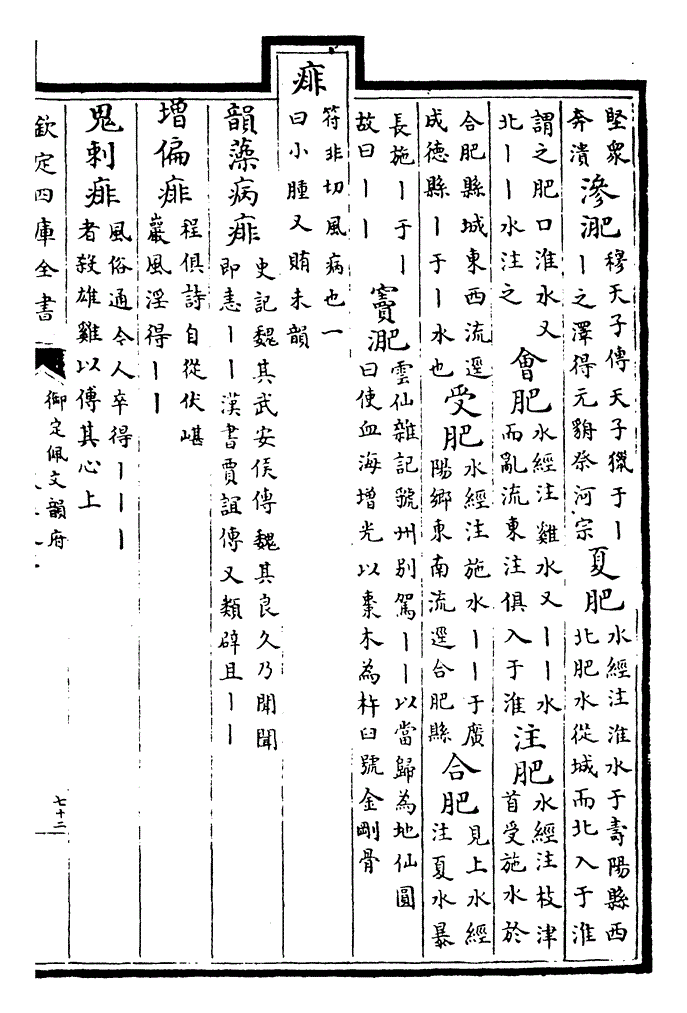 堅眾奔潰滲淝穆天子傳天子獵于丨丨之澤得元貈祭河宗夏肥水經注淮水于壽陽縣西北肥水從城而北入于淮
謂之肥口淮水又北丨丨水注之會肥水經注雞水又丨丨水而亂流東注俱入于淮注肥水經注枝津首受施水於
合肥縣城東西流逕成德縣丨于丨水也受肥水經注施水丨丨于廣陽鄉東南流逕合肥縣合肥見上水經注夏水暴
長施丨于丨故曰丨丨竇淝雲仙雜記號州別駕丨丨以當歸為地仙圓曰使血海增光以棗木為杵臼號金剛骨
痱符非切風病也一曰小腫又賄未韻
韻藻病痱史記魏其武安侯傳魏其良久乃聞聞即恚丨丨漢書賈誼傳又類辟且丨丨
增偏痱程俱詩自從伏嵁巖風淫得丨丨
鬼刺痱風俗通今人卒得丨丨丨者殺雄雞以傅其心上
欽定四庫全書
御定佩文韻府
七十二